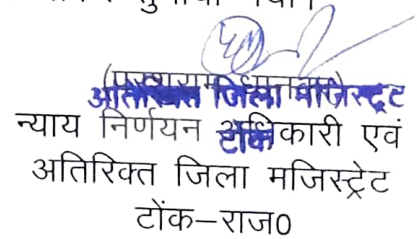 अतिरिक्त जिला मजिस्ट्रेट
टोंक
न्याय निर्णयन अधिकारी एवं
अतिरिक्त जिला मजिस्ट्रेट
टोंक–राज0